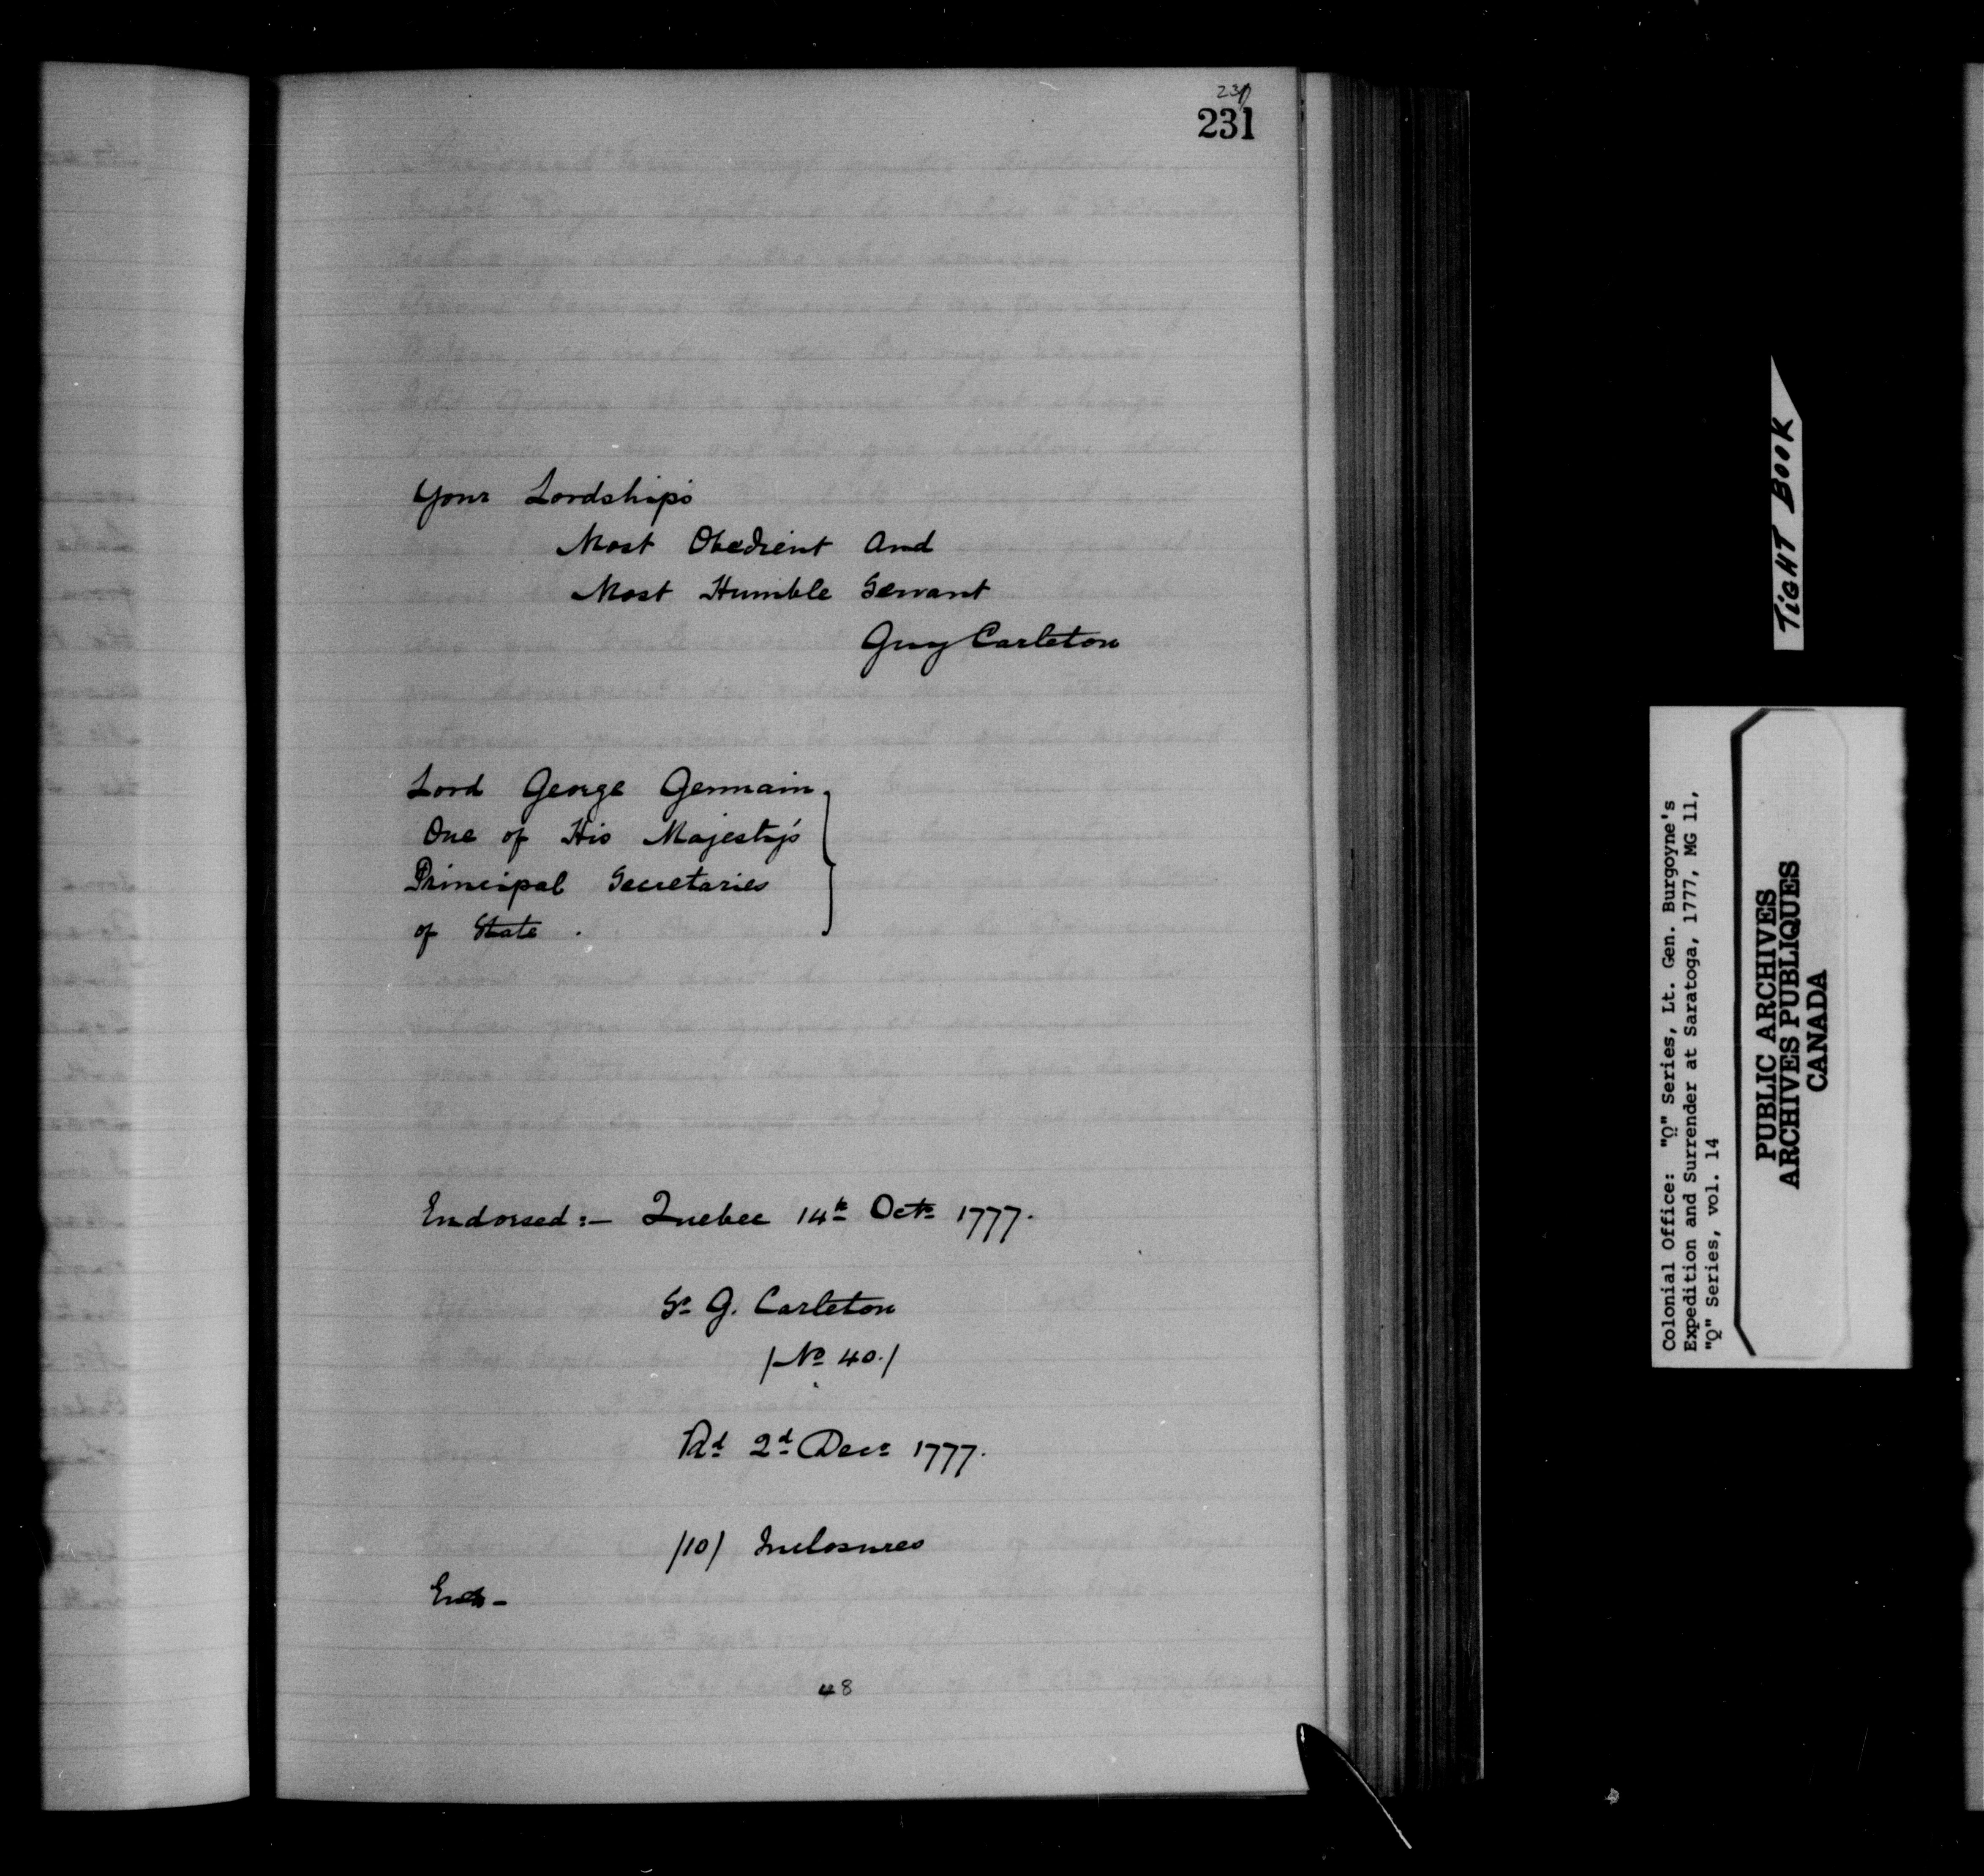 231
231
Your Lordship's
Most Obedient And
Most Humble Servant
Guy Carleton
Lord George Germain
One of His Majesty's
Principal Secretaries
of State.
Endorsed:- Quebec 14th Octr 1777.
Sr G. Carleton
/No 40./
Rd 2d Decr 1777.
/10/ Inclosures
48
TIGHT BOOK
Colonial Office: "Q" Series, Lt. Gen. Burgoyne's
Expedition and Surrender at Saratoga, 1777, MG 11,
"Q" Series, vol. 14
PUBLIC ARCHIVES
ARCHIVES PUBLIQUES
CANADA